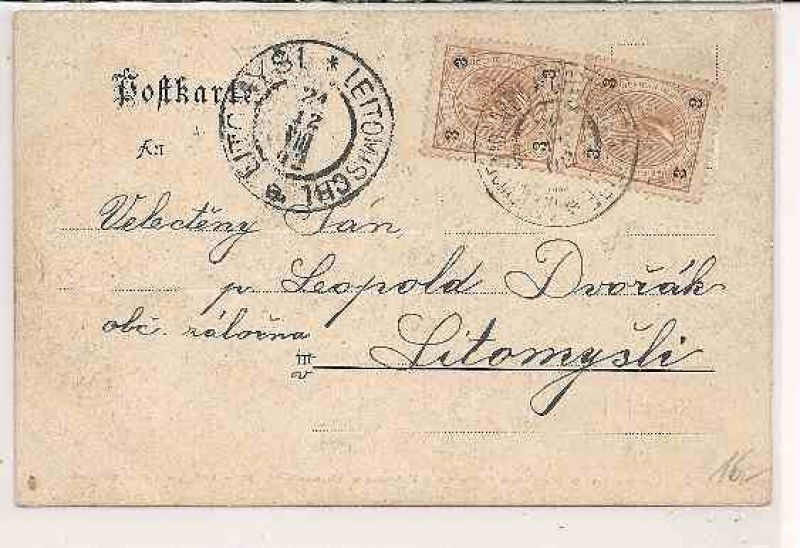 Postkarte
An
LITOMYŠL * LEITOMISCHL
24
12
VIII
3 3 3 3
3 3 3 3
Velectěný Pán,
p. Leopold Dvořák
obč. záložna
in
v Litomyšli
16.-